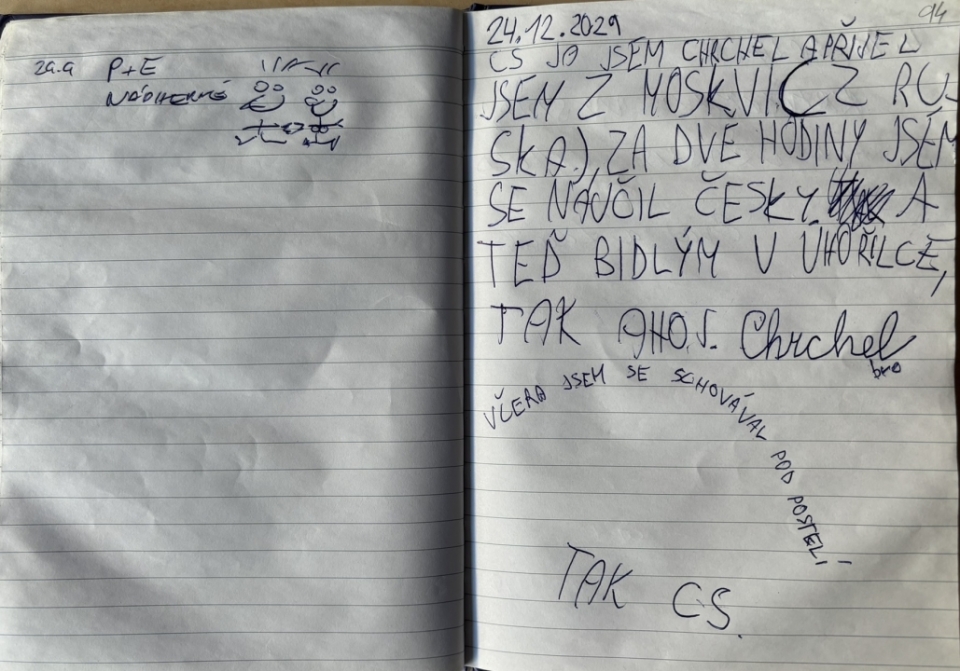 29.9 P+E
NÁDHERNÉ
94
24.12.2029
CS JÁ JSEM CHRCHEL A PŘIJEL
JSEM Z MOSKVI CZ RU-
SKA), ZA DVE HODINY JSEM
SE NAUČIL ČESKY. A
TEĎ BIDLÝM V ÚHOŘILCE,
TAK AHOJ. Chrchel
bro
VČERA JSEM SE SCHOVÁVAL POD POSTELÍ
TAK CS.